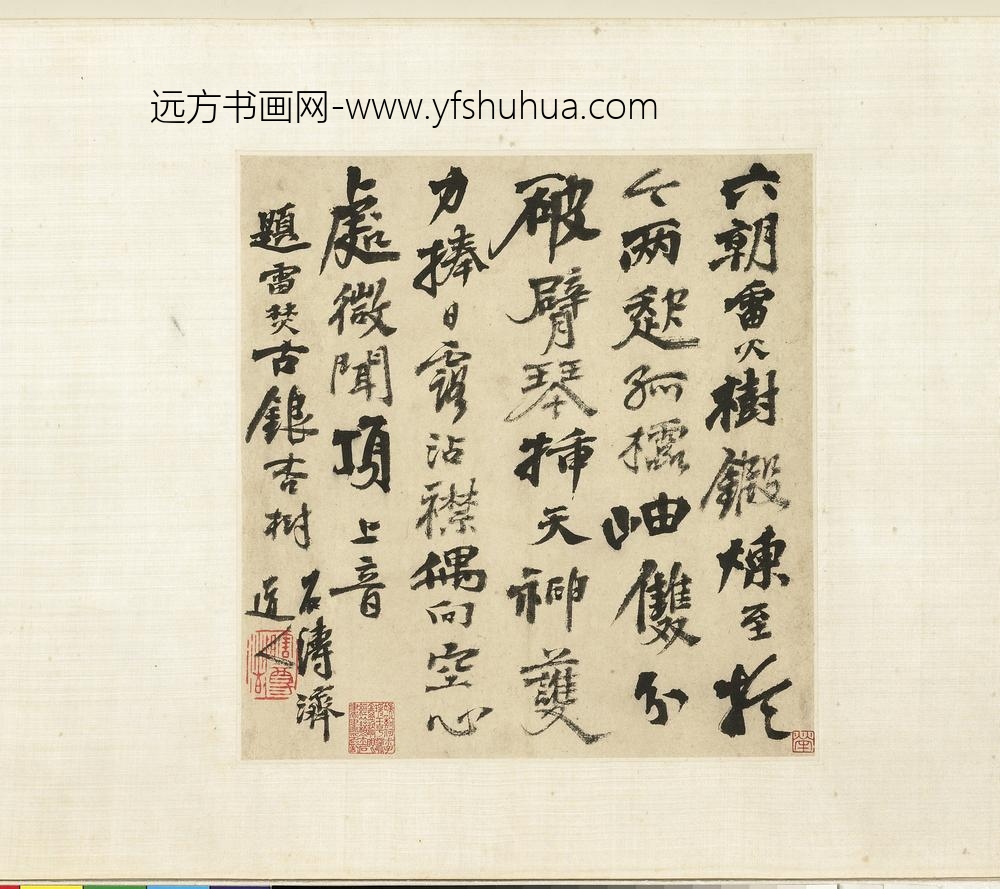 远方书画网-www.yfshuhua.com
六朝雷火樹鍛煉至於
今兩蹵孤擩岫雙分
破臂琴插天神護
力捧日露沾襟偶向空心
處微聞頂上音
題雷焚古銀杏樹
石濤濟
道人